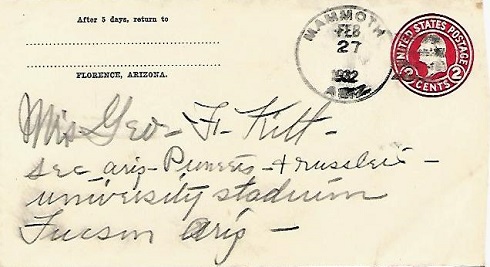 After 5 days, return to
FLORENCE, ARIZONA.
MAMMOTH
FEB
27
1932
ARIZ.
UNITED STATES POSTAGE
2 CENTS 2
Mrs Geo- F- Kitt-
sec ariz- Pioneers-
university stadium
Tucson Ariz-